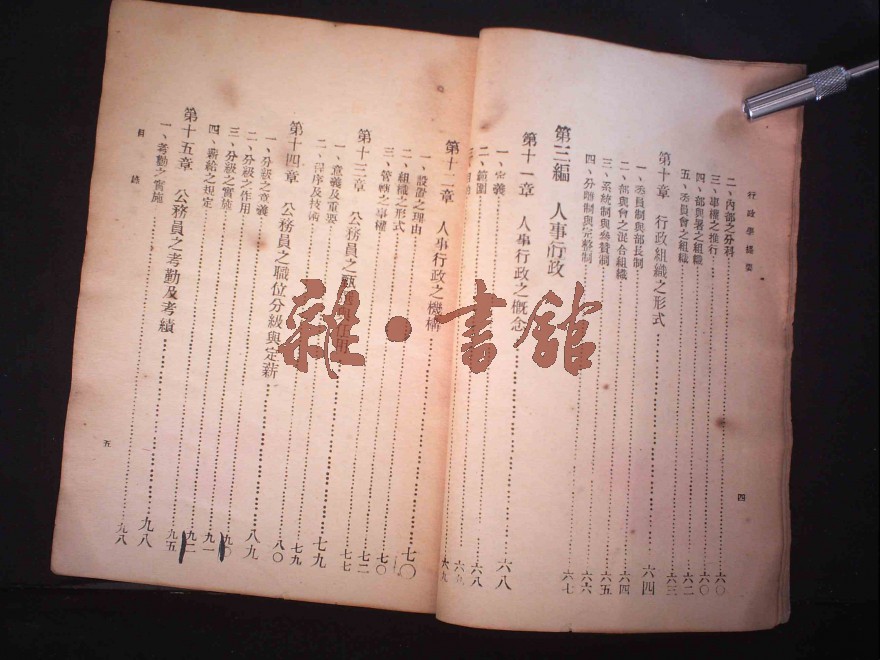 行政學提要
二、內部之分科……六〇
三、事權之推行……六〇
四、部與署之組織……六〇
五、委員會之組織……六二
第十章 行政組織之形式……六四
一、委員制與部長制……六三
二、部與會之混合組織……六四
三、系統制與參贊制……六五
四、分離制與完整制……六六
第三編 人事行政……六七
第十一章 人事行政之概念……六八
一、定義……六八
二、範圍
第十二章 人事行政之機構……七〇
一、設置之理由……七〇
二、組織之形式
三、管轄之事權……七二
第十三章 公務員之
一、意義及重要
二、程序及技術……七九
第十四章 公務員之職位分級與定薪……八〇
一、分級之意義
二、分級之作用……八九
三、分級之實施……九〇
四、薪給之規定……九一
第十五章 公務員之考勤及考績……九八
一、考勤之實施……九八
目錄
四
五
雜·書館